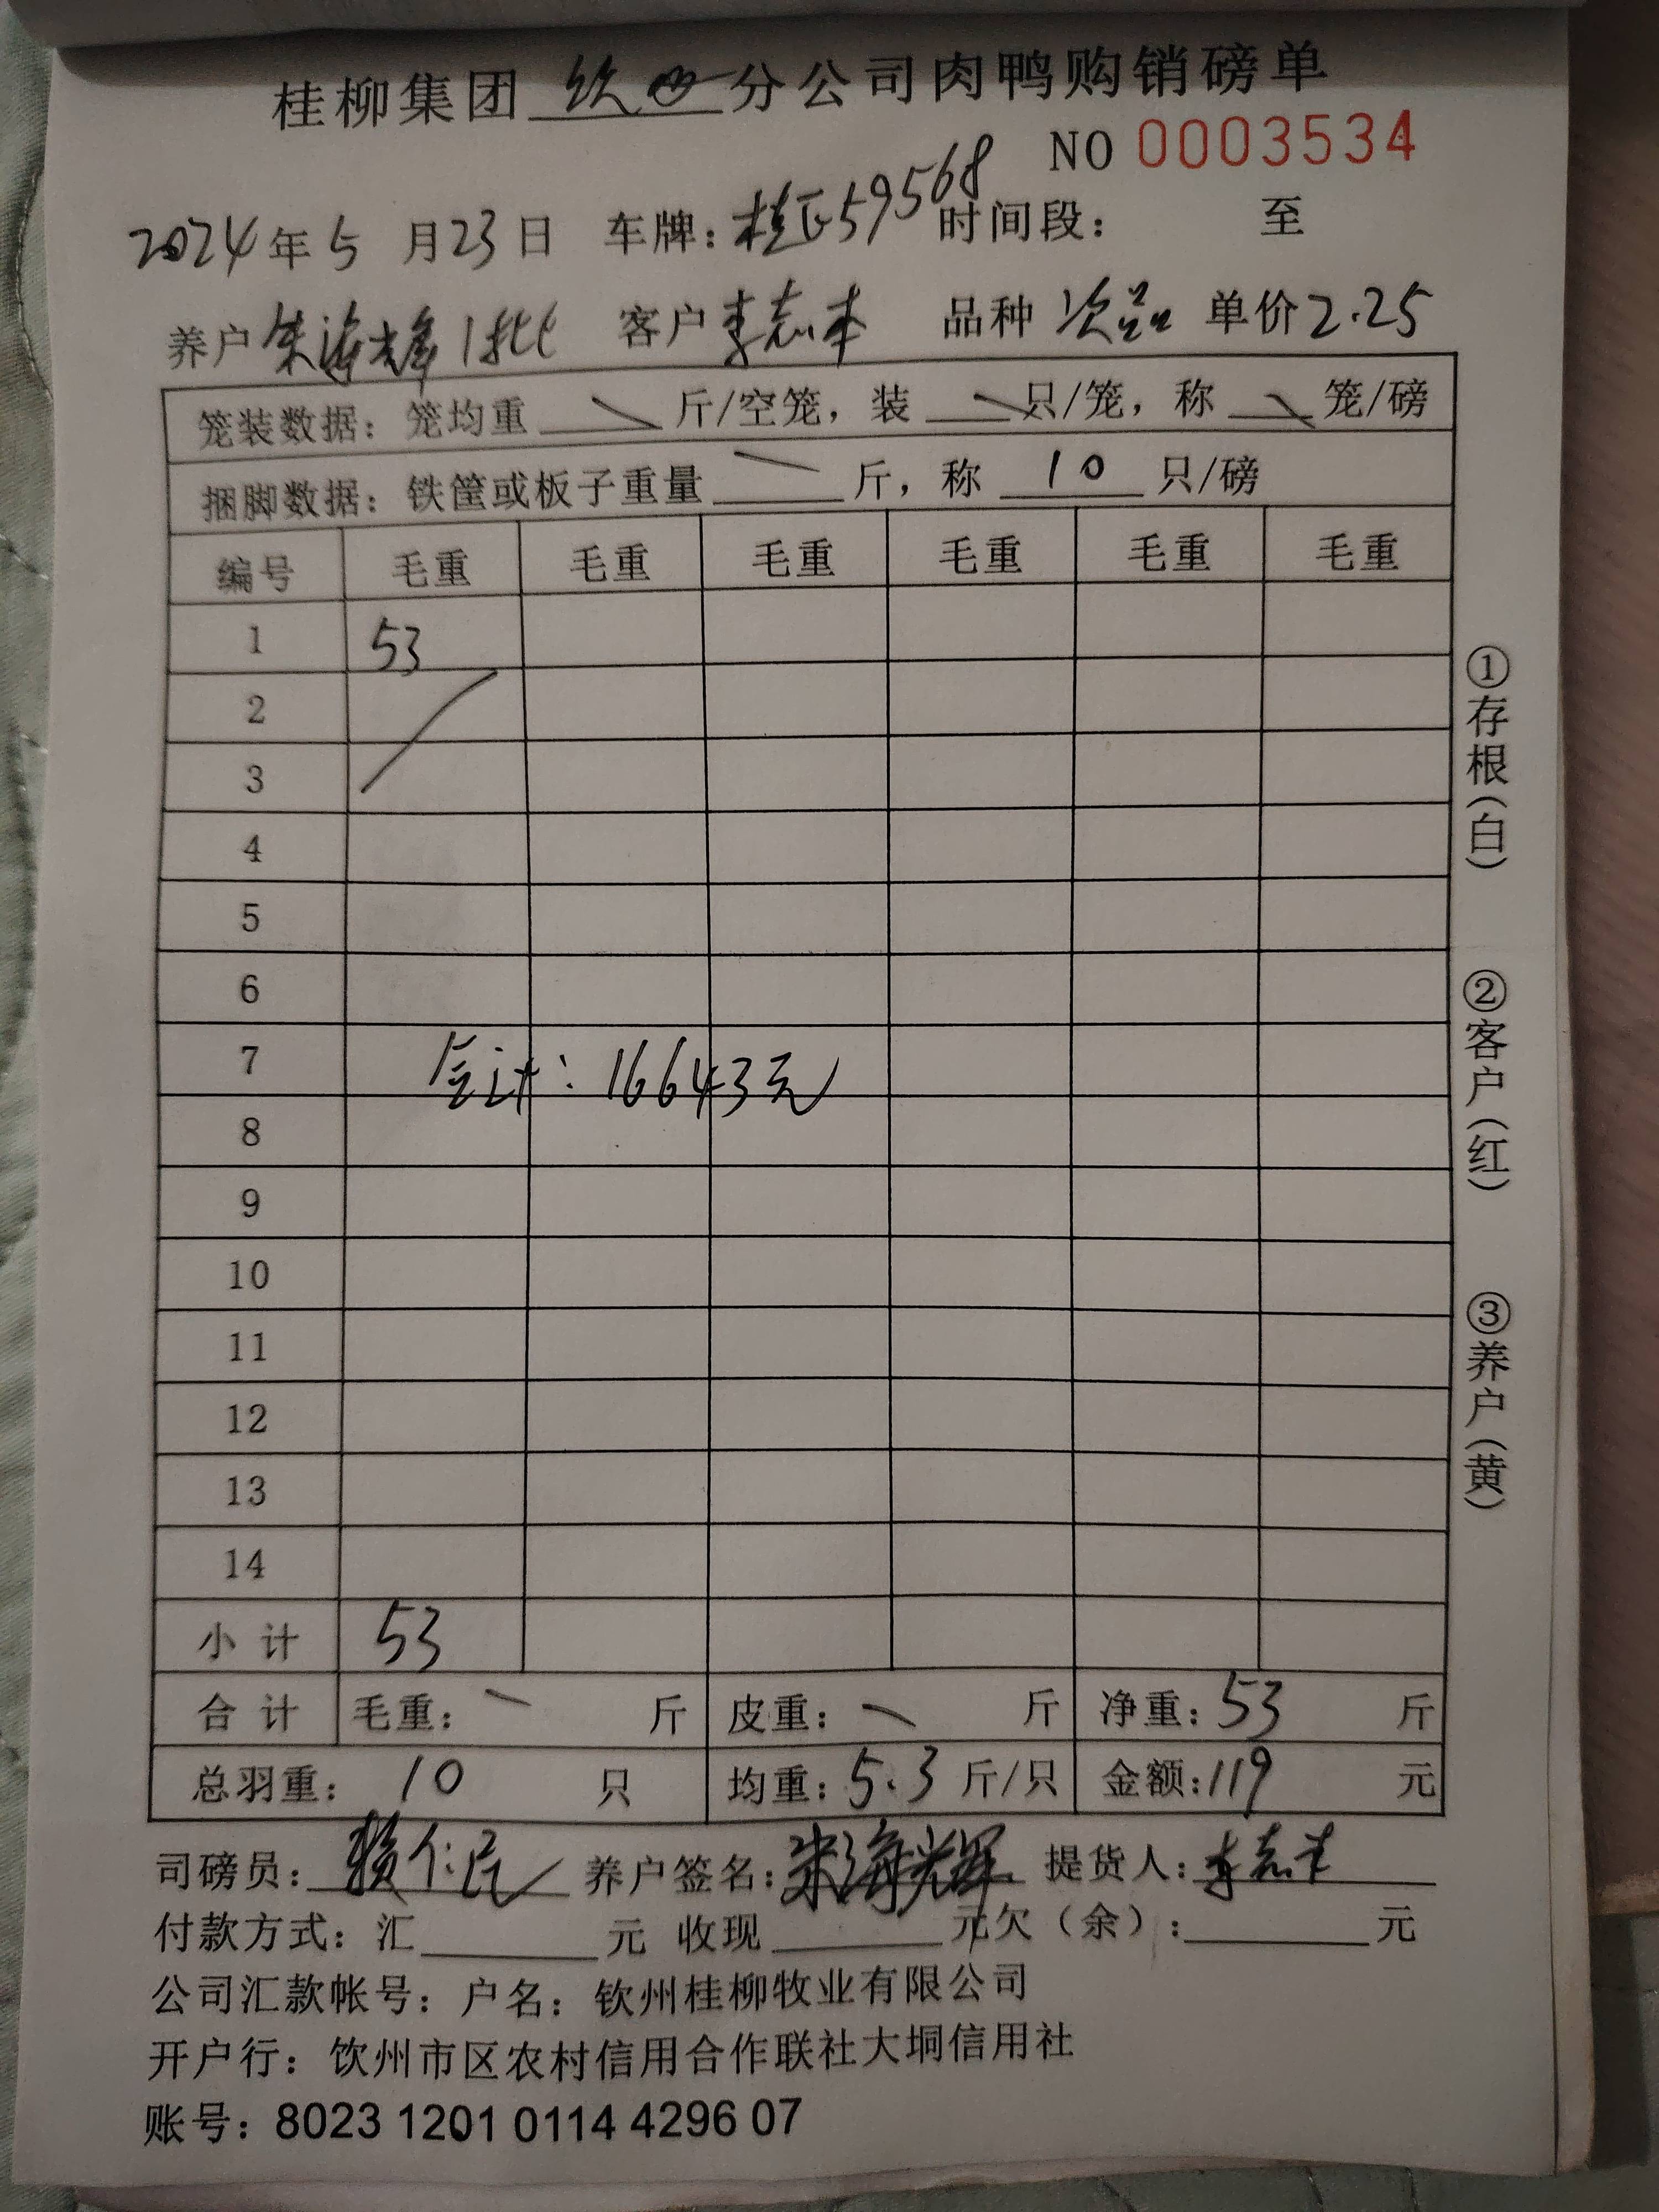 桂柳集团 钦州 分公司肉鸭购销磅单
NO 0003534
2024年5月23日 车牌：桂E59568 时间段： 至
养户 朱海辉 1批 客户 李志丰 品种 次品 单价 2.25
笼装数据：笼均重 斤/空笼，装 只/笼，称 笼/磅
捆脚数据：铁筐或板子重量 斤，称 10 只/磅
编号 毛重 毛重 毛重 毛重 毛重 毛重
1 53
2
3
4
5
6
7
合计：16643元
8
9
10
11
12
13
14
小计 53
合计 毛重： 斤 皮重： 斤 净重：53 斤
总羽重：10 只 均重：5.3 斤/只 金额：119 元
司磅员：赖仁民 养户签名：朱海辉 提货人：李志丰
付款方式：汇 元 收现 元欠（余）： 元
公司汇款帐号：户名：钦州桂柳牧业有限公司
开户行：钦州市区农村信用合作联社大垌信用社
账号：8023 1201 0114 4296 07
①存根（白）
②客户（红）
③养户（黄）